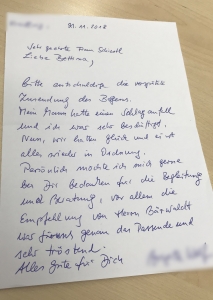 30.11.2018
Sehr geehrte Frau
Liebe Bettina,
bitte entschuldige die verspätete
Zusendung des Bogens.
Mein Mann hatte einen Schlaganfall
und ich war sehr beschäftigt.
Nun, wir hatten Glück und es ist
alles wieder in Ordnung.
Persönlich möchte ich mich gerne
bei Dir bedanken für die Begleitung
und Beratung, vor allem die
Empfehlung von Herrn
war genau das Passende und
sehr tröstend.
Alles Gute für Dich